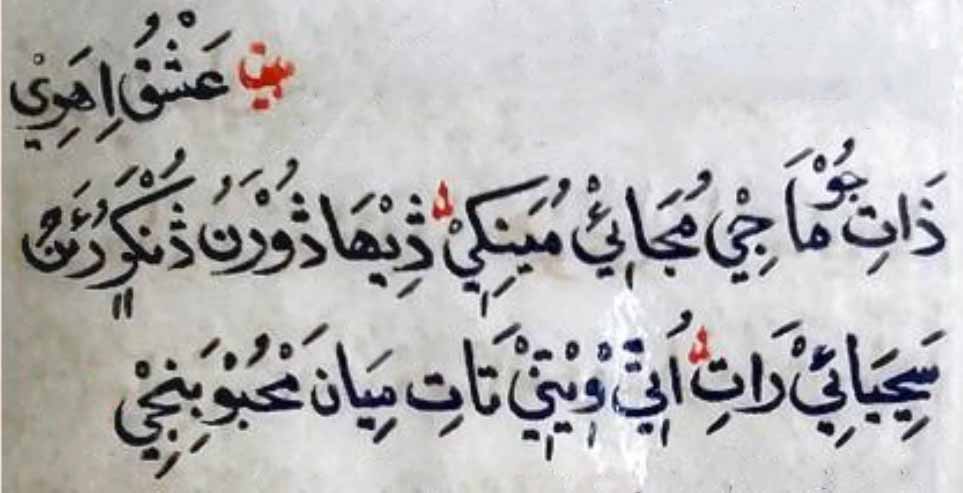 بيت عَشْقُ اِهَوِيْ
ذَاتِ جُوْ مَا جِيْ مُجَائِيْ مُيَنِکِيْ ڎِيْهَا ڎُوْرَنُ ڎُنْکَرَ رُئَنُ
سِيْحَيَائِيْ رَاتِ اُتِيْ وِيْتِيْ تَاتِ مِيَانَ مَحْبُوْبَنِجِيْ